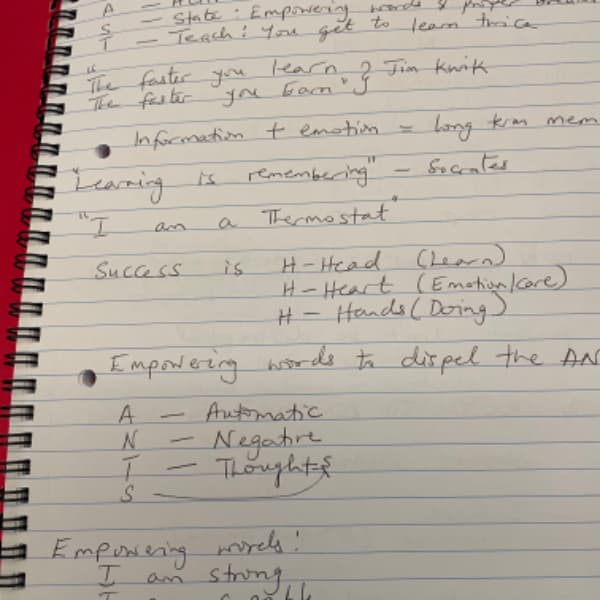 A —
S — State : Empowering words & proper
T — Teach : You get to learn twice
"The faster you learn } Jim Kwik
The faster you Earn"
Information + emotion = long term mem
"Learning is remembering" — Socrates
"I am a Thermostat"
Success is H – Head (Learn)
H – Heart (Emotion/care)
H – Hands (Doing)
Empowering words to dispel the AN
A — Automatic
N — Negative
T — Thoughts
S
Empowering words :
I am strong
I